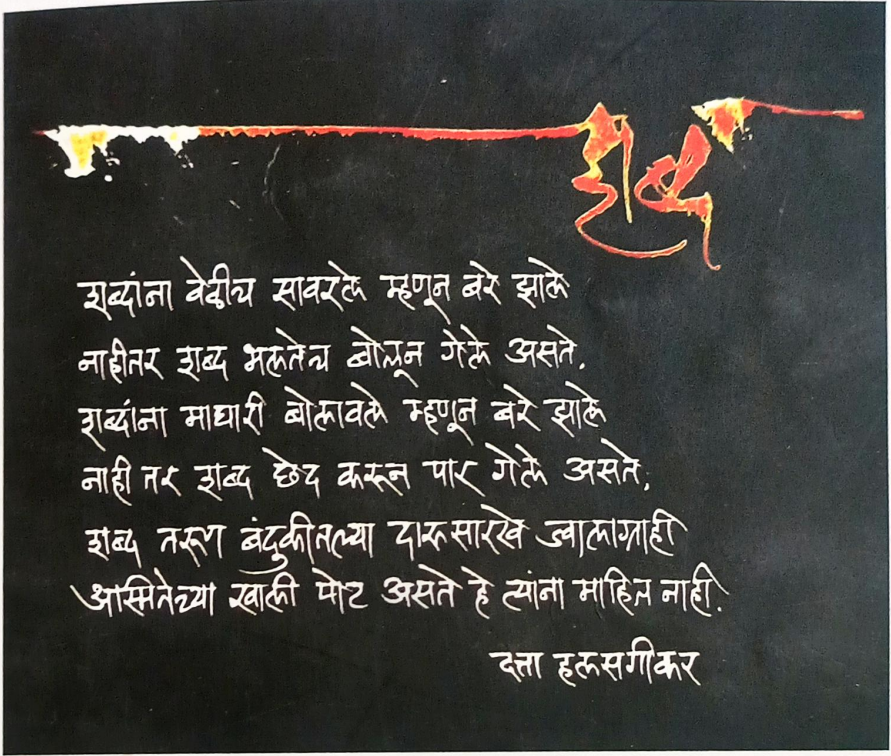 शब्द
शब्दांना वेळीच सावरले म्हणून बरे झाले
नाहीतर शब्द भलतेच बोलून गेले असते.
शब्दांना माघारी बोलावले म्हणून बरे झाले
नाही तर शब्द छेद करून पार गेले असते.
शब्द तरूण बंदुकीतल्या दारूसारखे ज्वालाग्राही
अस्मितेच्या खाली पोट असते हे त्यांना माहित नाही.
दत्ता हलसगीकर